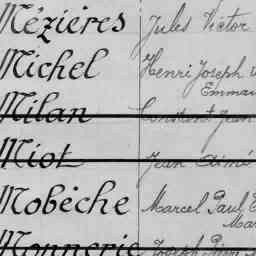 Mézières Jules Victor
Michel Henri Joseph
Milan Constant Jean
Miot Jean Aimé
Mobèche Marcel Paul
Monnerie Joseph